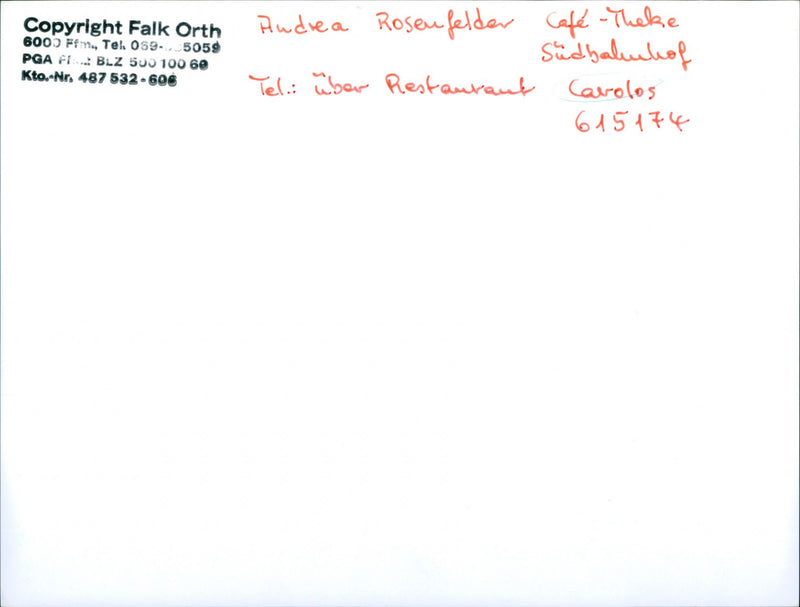 Copyright Falk Orth
6000 Ffm., Tel. 069- 5059
PGA BLZ 500 100 60
Kto.-Nr. 487 532 - 606
Andrea Rosenfelder Café-Theke
Südbahnhof
Tel.: über Restaurant Carolos
615174